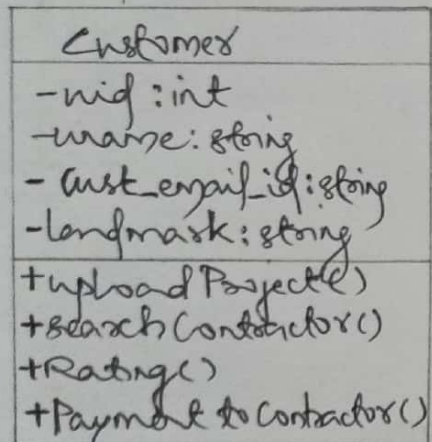 Customer
-uid : int
-uname : string
- Cust_email_id : string
-landmark : string
+upload Project()
+search Contractor()
+Rating()
+Payment to Contractor()